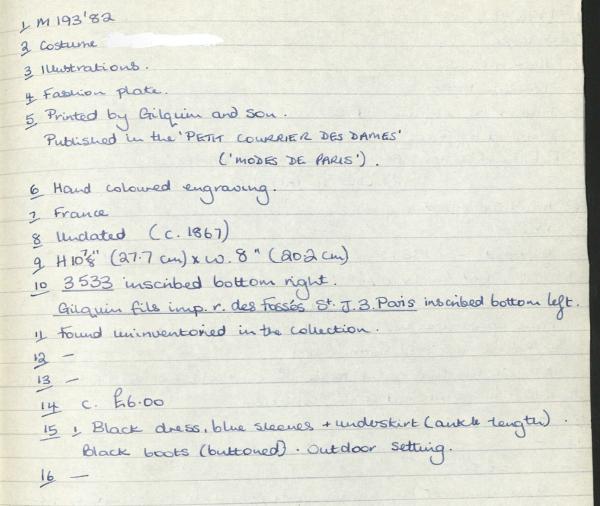 1 M 193'82
2 Costume
3 Illustrations.
4 Fashion plate.
5 Printed by Gilquin and Son.
Published in the 'PETIT COURRIER DES DAMES'
('MODES DE PARIS').
6 Hand coloured engraving.
7 France
8 Undated (c. 1867)
9 H 10 7/8" (27.7 cm) x W. 8" (20.2 cm)
10 3533 inscribed bottom right.
Gilquin fils imp. r. des Fossés St. J. 3. Paris inscribed bottom left.
11 Found uninventoried in the collection.
12 –
13 –
14 c. £6.00
15 1 Black dress, blue sleeves + underskirt (ankle length).
Black boots (buttoned). Outdoor setting.
16 –